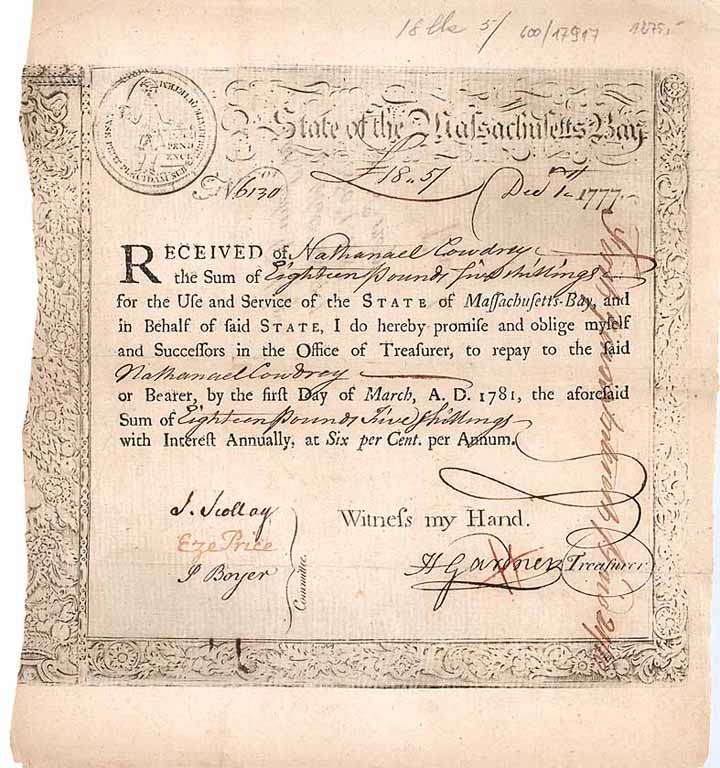 18 5/ 600/17917 1275,-
State of the Maſsachusetts Bay
No. 6130 £18..5/ Decr 1st 1777
RECEIVED of Nathanael Cowdrey
the Sum of Eighteen pounds five shillings
for the Uſe and Service of the STATE of Maſſachuſetts-Bay, and
in Behalf of ſaid STATE, I do hereby promiſe and oblige myſelf
and Succeſſors in the Office of Treaſurer, to repay to the ſaid
Nathanael Cowdrey
or Bearer, by the firſt Day of March, A. D. 1781, the aforeſaid
Sum of Eighteen pounds Five shillings
with Intereſt Annually, at Six per Cent. per Annum.
J. Scollay
Eze Price
J Boyer
Committee.
Witneſs my Hand.
H Gardner Treasurer